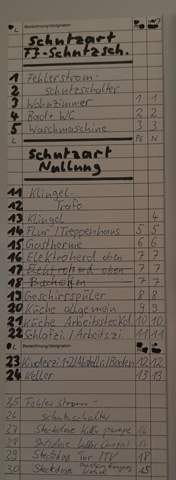 Schutzart
FI-Schutzsch.
1 Fehlerstrom-
2 schutzschalter
3 Wohnzimmer 1 1
4 Bad + WC 2 2
5 Waschmaschine 3 3
L PE N
Schutzart
Nullung
11 Klingel-
12 Trafo
13 Klingel 4
14 Flur/Treppenhaus 5 5
15 Gastherme 6 6
16 Elektroherd oben 7 7
17 Elektroherd oben 7 7
18 Backofen 7 7
19 Geschirrspüler 8 8
20 Küche allgemein 9 9
21 Küche Arbeitssteckd. 10 10
22 Schlafzi/Arbeitszi 11 11
23 Kinderzi 1+2/Abstellr/Boden 12 12
24 Keller 13 13
25 Fehlerstrom-
26 schutzschalter
27 Steckdose 14
28 Steckdose Keller
29 Steckdose 
30 Steckdose 15